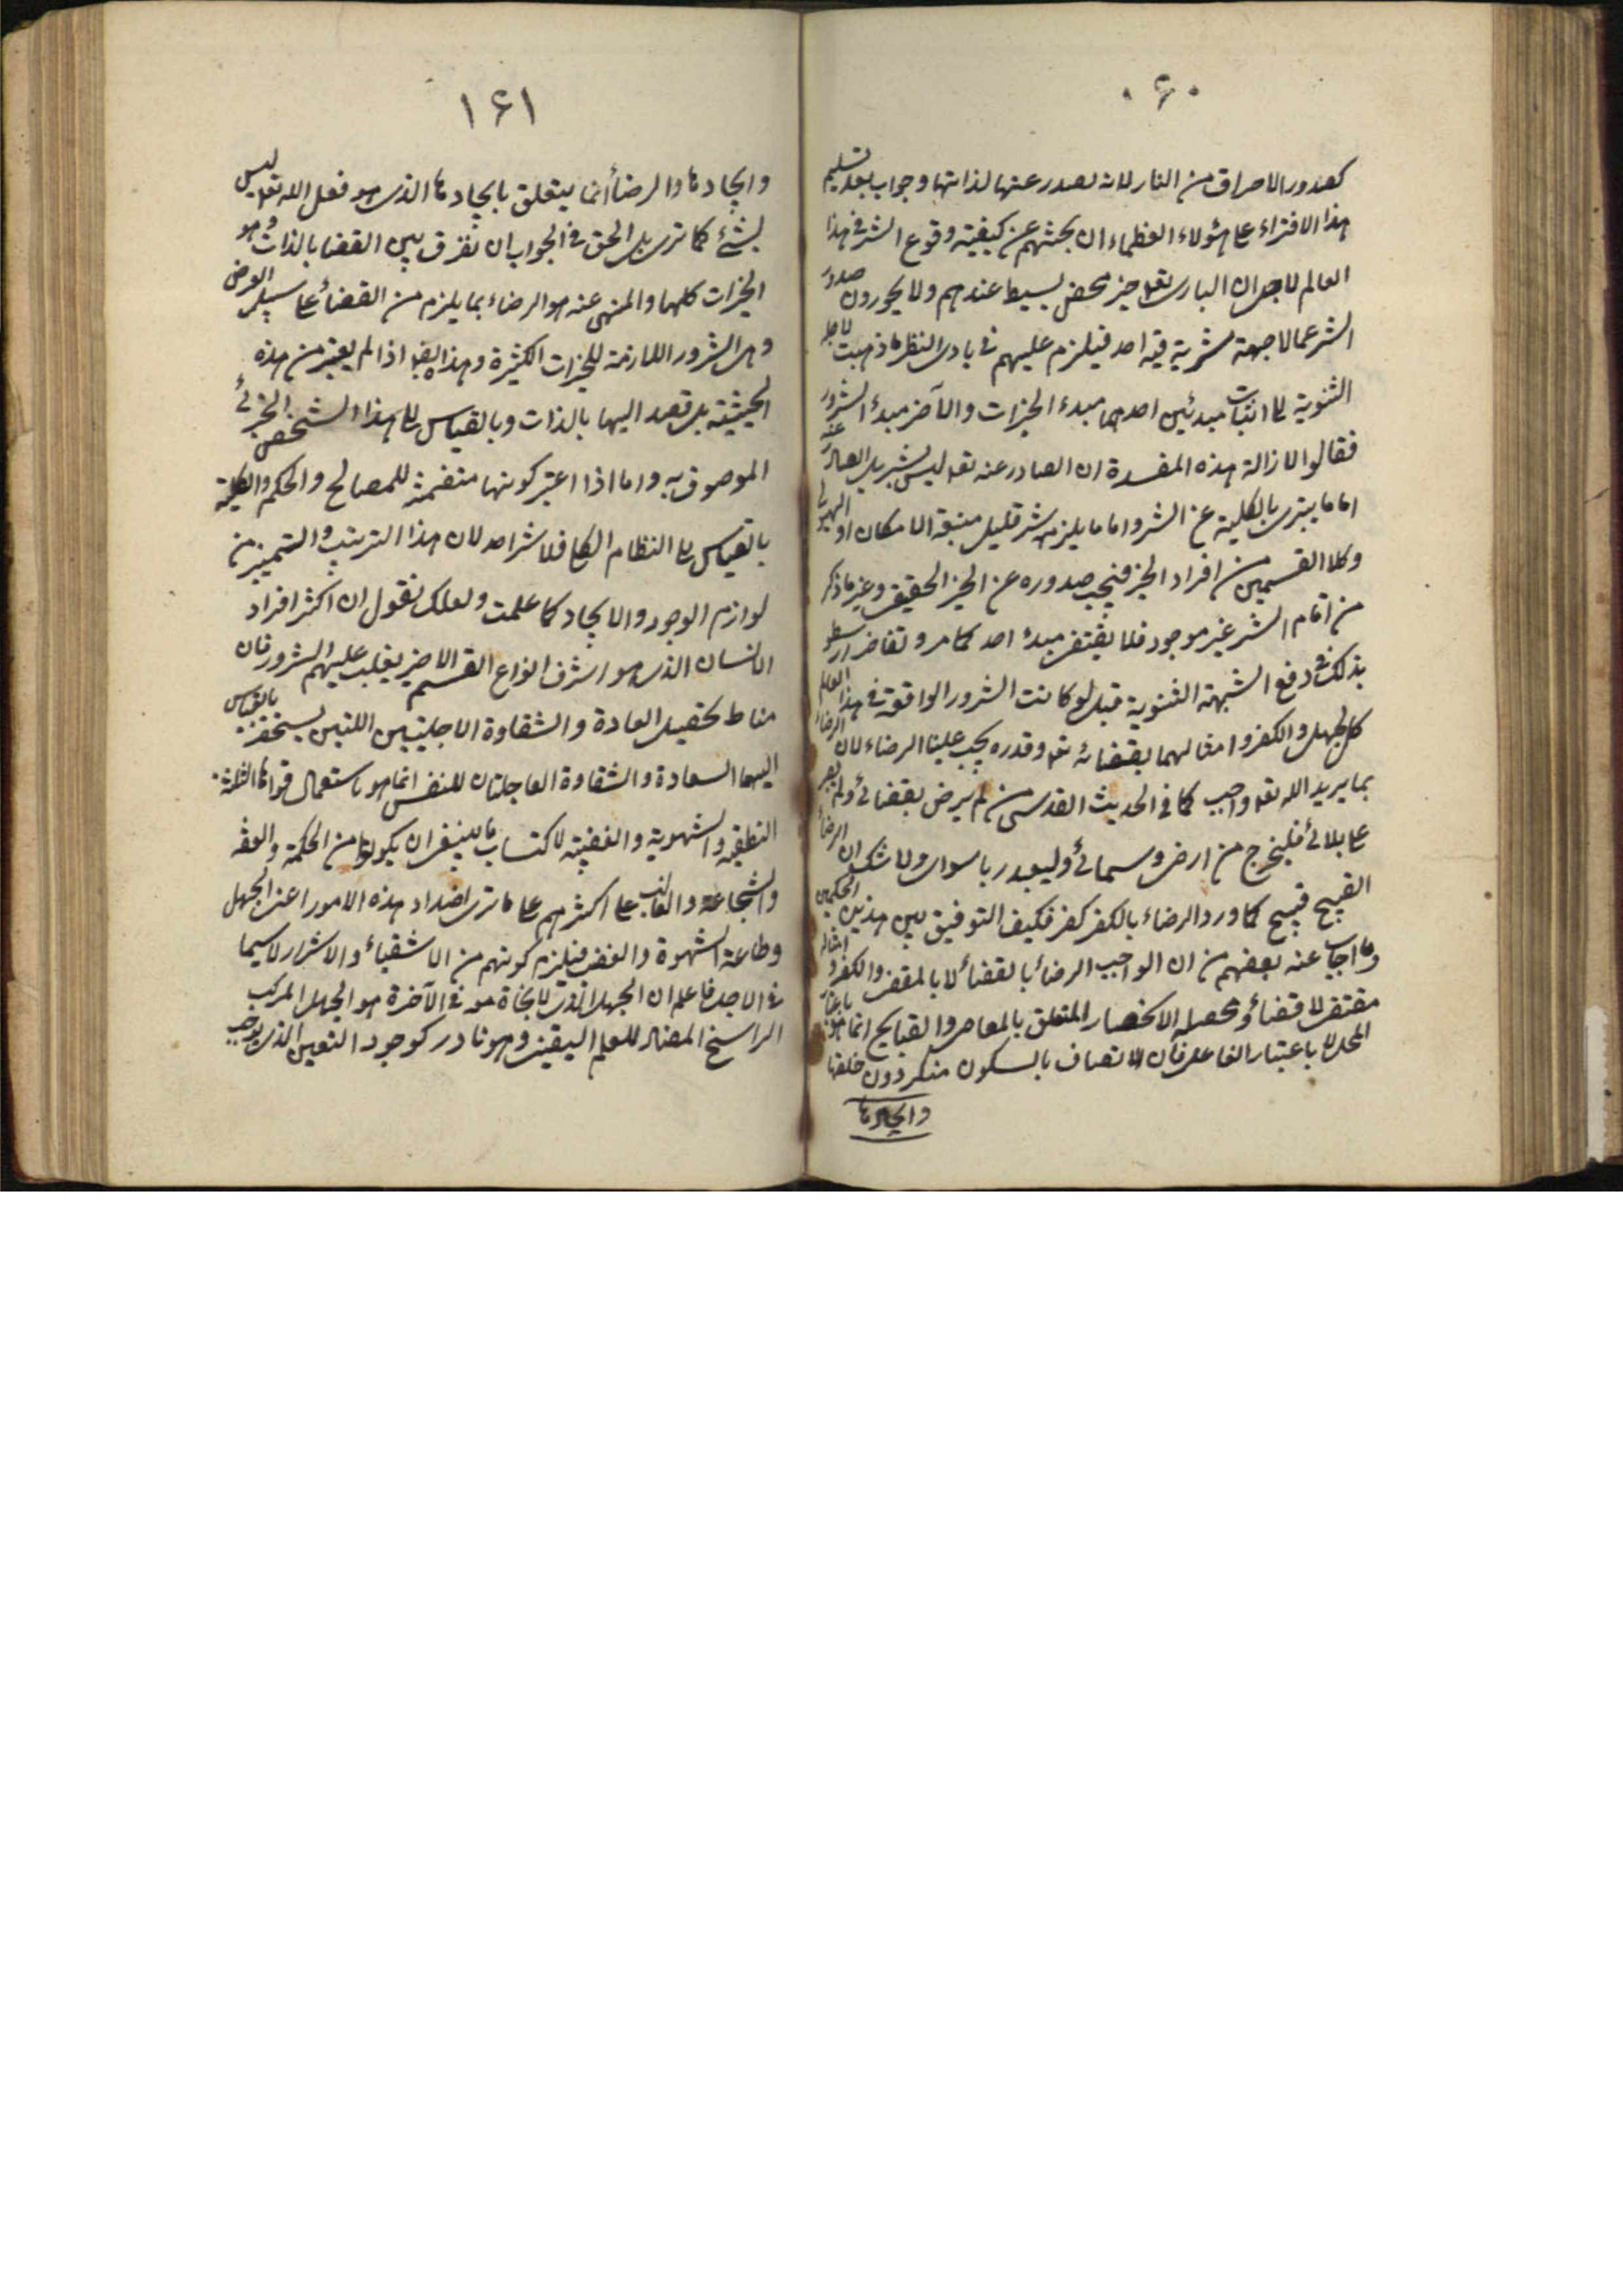 ٠۶٠
كصدور الاحراق من النار لانه يصدر عنها لذاتها وجواب بعد تسليم
هذا الافتراء على هؤلاء العظماء ان بحثهم عن كيفية وقوع الشر فى هذا
العالم لاجل ان البارى تعه خير محض بسيط عندهم ولا يجوزون صدور
الشر عما لا جهة شرية فيه اصلا فيلزم عليهم فى بادى النظر ما ذهبت لاجله
الثنوية الى اثبات مبدئين احدهما مبدء الخيرات والآخر مبدء الشرور
فقالوا لازالة هذه المفسدة ان الصادر عنه تعه ليس بشر بل الصادر عنه
اما ما يتبرى بالكلية عن الشر واما ما يلزمه شر قليل منبعه الامكان او الهيولى
وكلا القسمين من افراد الخير فيجب صدوره عن الخير الحقيقى وغير ما ذكر
من اقسام الشر غير موجود فلا يقتضى مبدء اصلا كما مر وتفاخر ارسطو
بذلك فى دفع الشبهة الثنوية قيل لو كانت الشرور الواقعة فى هذا العالم
كالجهل والكفر وامثالهما بقضائه تعه وقدره يجب علينا الرضاء لان الرضاء
بما يريد الله تعه واجب كما فى الحديث القدسى من لم يرض بقضائى ولم يصبر
على بلائى فليخرج من ارضى وسمائى وليعبد ربا سواى ولا شك ان الرضاء
القبيح قبيح كما ورد الرضاء بالكفر كفر فكيف التوفيق بين هذين الحكمين
وما اجاب عنه بعضهم من ان الواجب الرضاء بالقضاء لا بالمقضى والكفر وامثاله
مقتضى لا قضاء ومحصله الانحصار المتعلق بالمعاصى والقبايح انما هو باعتبار
المحل لا باعتبار الفاعل فان الاتصاف بالسكون منكر دون خلقها
وايجادها
١۶١
وايجادها والرضاء انما يتعلق بايجادها الذى هو فعل الله تعه ليس
بشئ كما ترى بل الحق فى الجواب ان نفرق بين القضا بالذات وهو
الخيرات كلها والمنهى عنه هو الرضاء بما يلزم من القضاء على سبيل العرض
وهى الشرور اللازمة للخيرات الكثيرة وهذا ايضا اذا لم يعتبر من هذه
الحيثية بل قصد اليها بالذات وبالقياس الى هذا الشخص الجزئى
الموصوف به واما اذا اعتبر كونها متضمنة للمصالح والحكم والكلية
بالقياس الى النظام الكلى فلا شر اصلا لان هذا الترتيب والتمييز من
لوازم الوجود والايجاد كما علمت ولعلك تقول ان اكثر افراد
الانسان الذى هو اشرف انواع القسم الاخير يغلب عليهم الشرور فان
مناط تحصيل السعادة والشقاوة الاجليتين اللتين يستحقر بالقياس
اليهما السعادة والشقاوة العاجلتان للنفس انما هو باستعمال قواها الثلثة
النطقيه والشهوية والغضبية لاكتساب ما ينبغى ان يكون لها من الحكمة والعفه
والشجاعة والغالب على اكثرهم على ما ترى اضداد هذه الامور اعنى الجهل
وطاعة الشهوة والغضب فيلزم كونهم من الاشقياء والاشرار لا سيما
فى الاجل فاعلم ان الجهل الذى لا نجاة معه فى الآخرة هو الجهل المركب
الراسخ المضاد للعلم اليقينى وهو نادر كوجود اليقين الذى يوجب